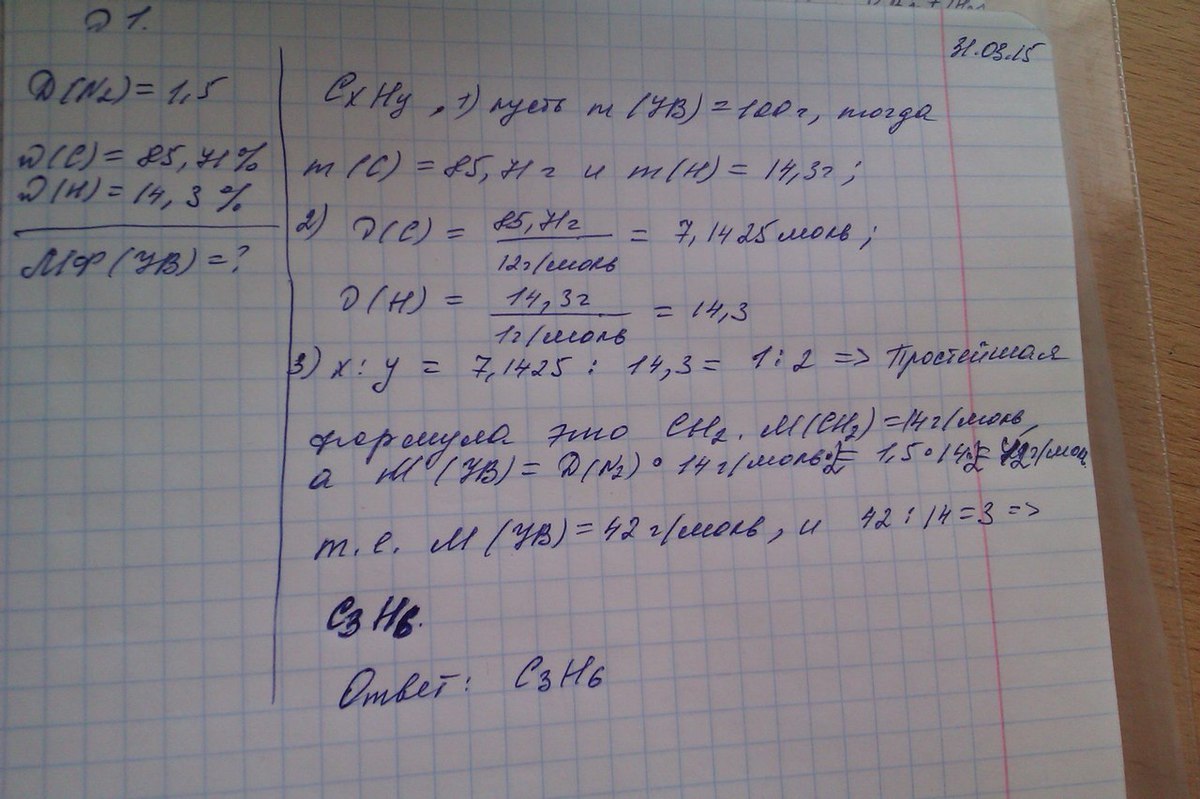 31.03.15
D(N₂) = 1,5
ω(C) = 85,71%
ω(H) = 14,3%
МФ (УВ) = ?
CxHy, 1) пусть m (УВ) = 100 г, тогда
m (C) = 85,71 г и m(H) = 14,3 г;
2) ν(C) = 85,71 г / 12 г/моль = 7,1425 моль;
ν(H) = 14,3 г / 1 г/моль = 14,3
3) x : y = 7,1425 : 14,3 = 1 : 2 => Простейшая
формула это CH₂. M(CH₂) = 14 г/моль,
а M (УВ) = D(N₂) • 14 г/моль•2 = 1,5•14•2 = 42 г/моль
т.е. M (УВ) = 42 г/моль, и 42 : 14 = 3 =>
C₃H₆.
Ответ: C₃H₆